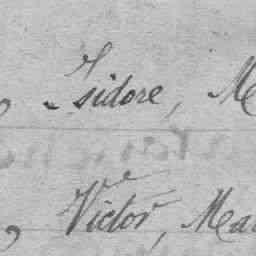 , Isidore, M
Vve Victor, Ma